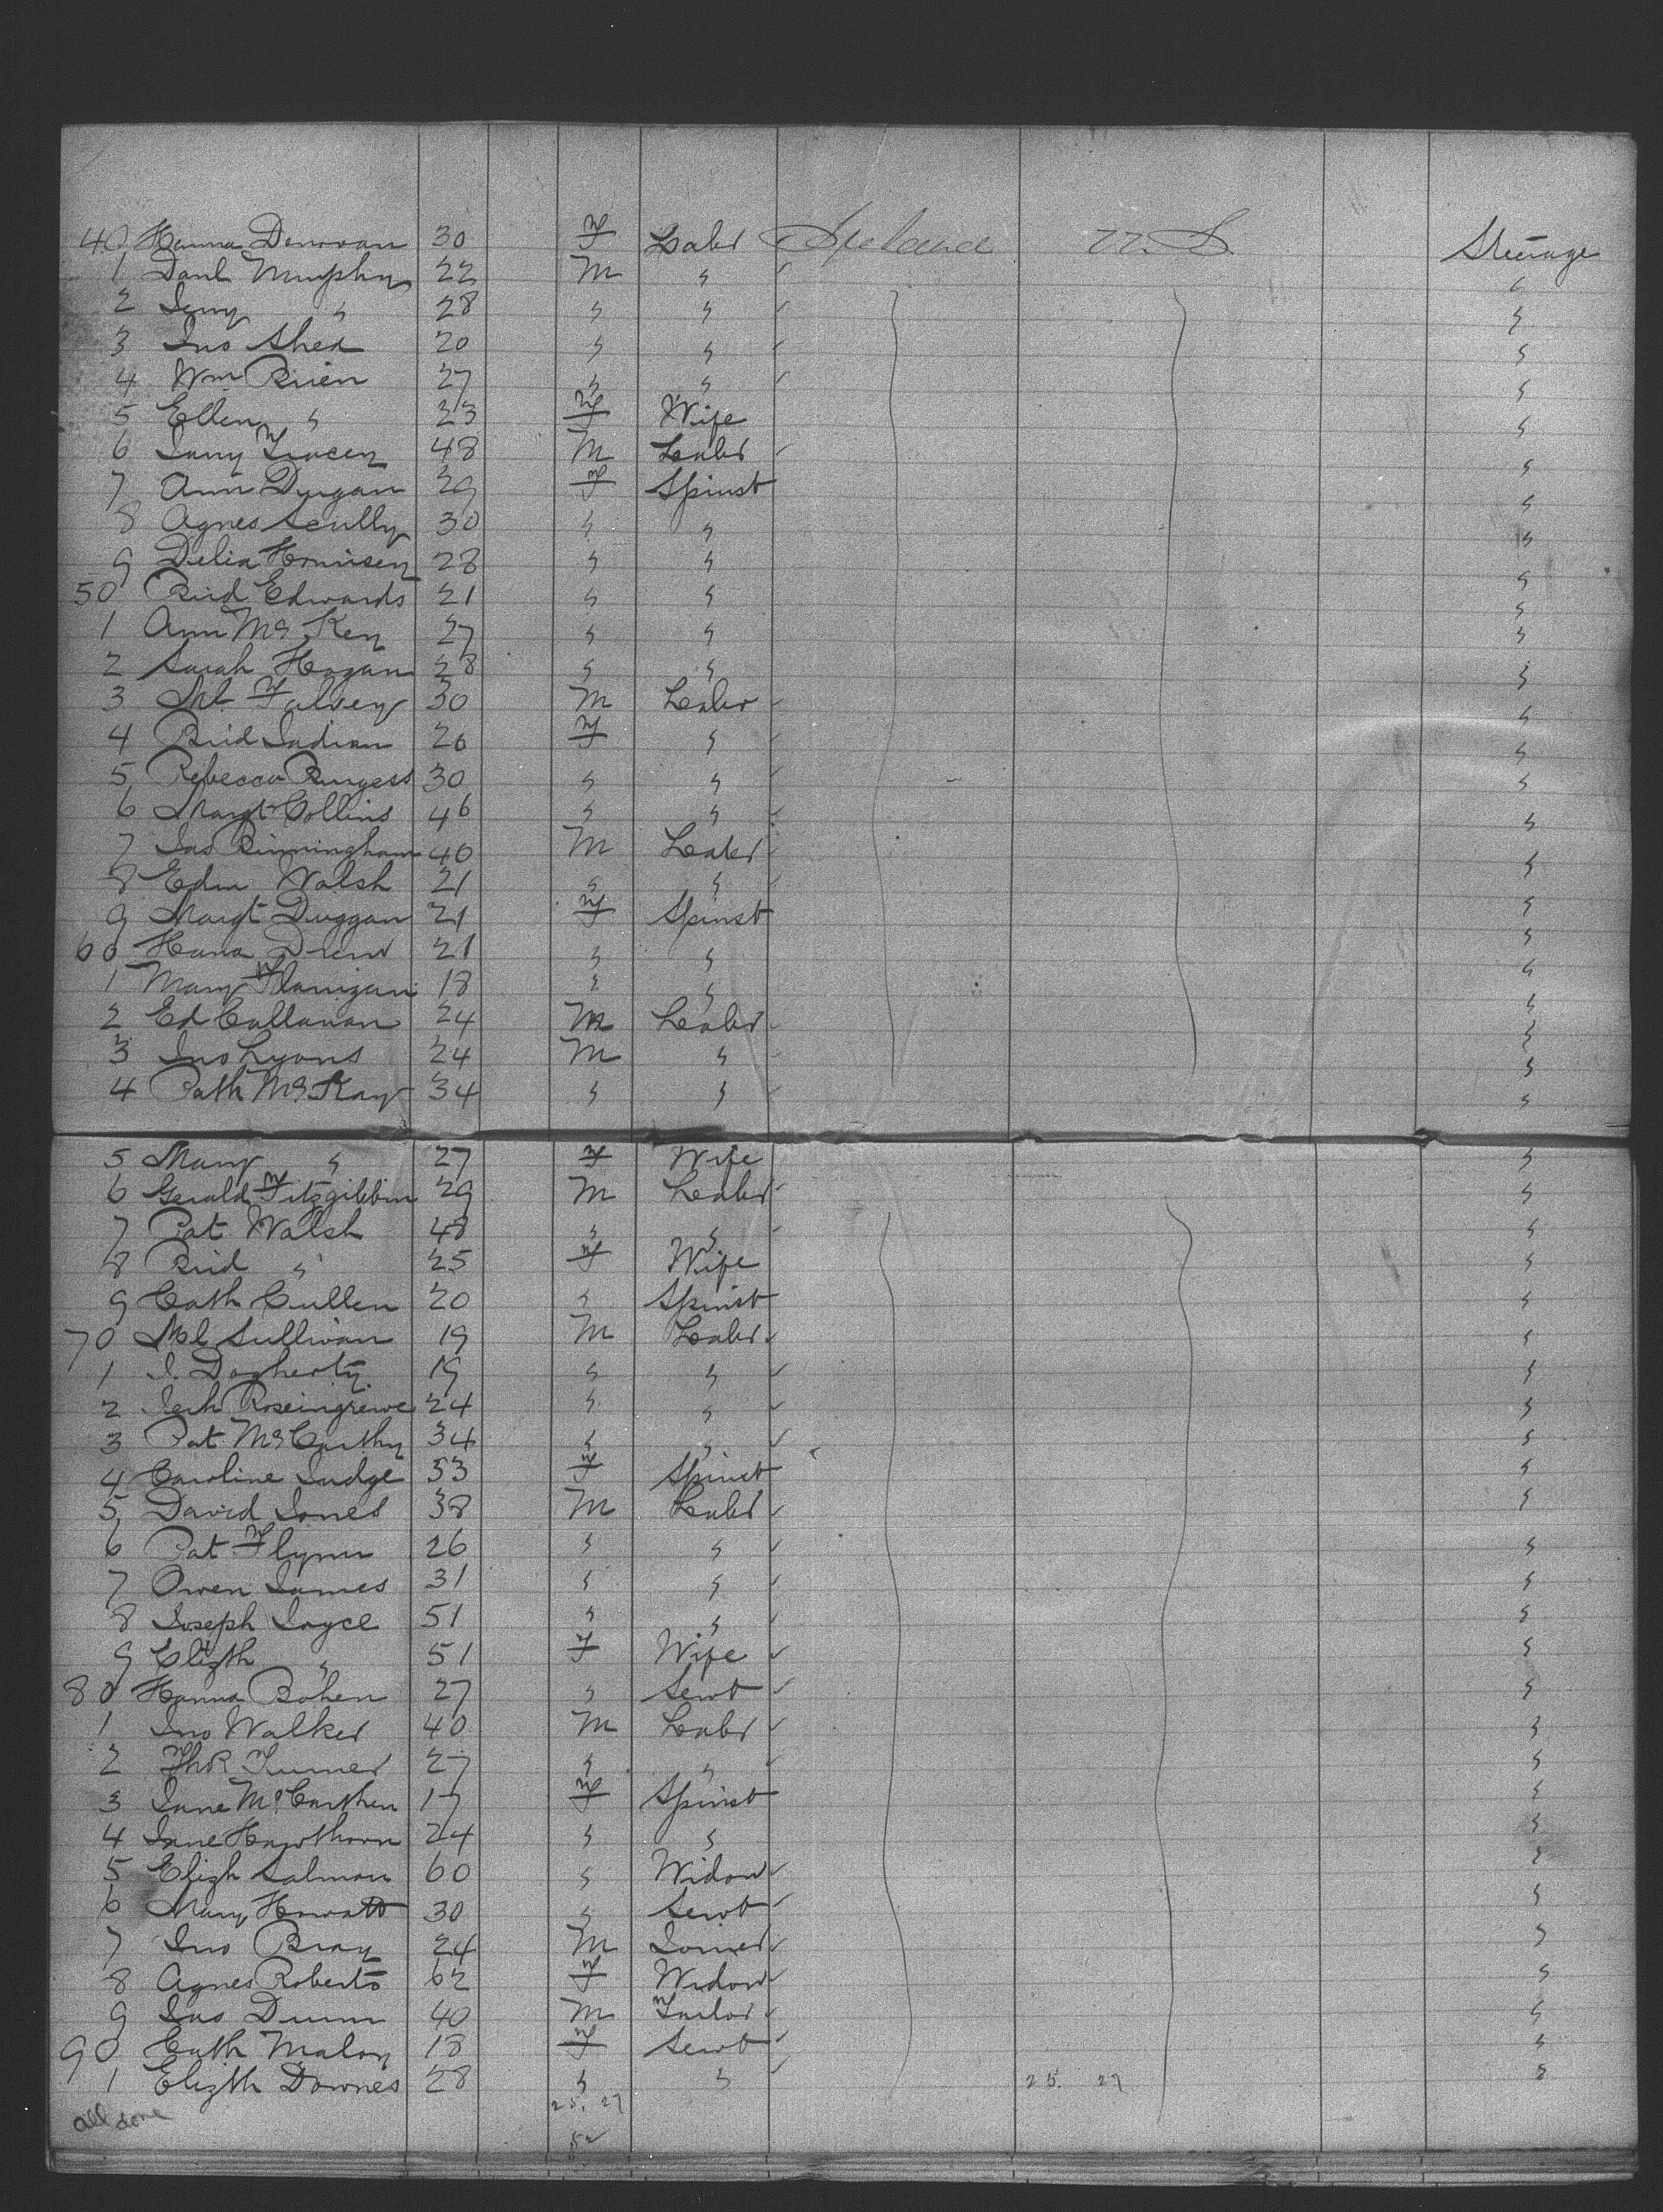 40 Hanna Donovan 30 F Labr Ireland U.S. Steerage
1 Danl Murphy 22 M " "
2 Jerry " 28 " " "
3 Jno Shea 20 " " "
4 Wm Brien 27 " " "
5 Ellen " 23 F Wife "
6 Tracey 48 M Labr "
7 Ann Dugan 29 F Spinst "
8 Agnes Scully 30 " " "
9 Delia 28 " " "
50 Brid Edwards 21 " " "
1 Ann Mc Key 27 " " "
2 Sarah Hogan 28 " " "
3 Ml Falvey 30 M Labr "
4 Brid 26 F " "
5 Rebecca Burgess 30 " " "
6 Margt Collins 46 " " "
7 Jas Birmingham 40 M Labr "
8 Edw Walsh 21 " " "
9 Margt Duggan 21 F Spinst "
60 Hana Drew 21 " " "
1 Mary Flanigan 18 " " "
2 Ed Callanan 24 M Labr "
3 Jno Lyons 24 M " "
4 Path Mc Kay 34 " " "
5 Mary " 27 F Wife "
6 Gerald Fitzgibbin 29 M Labr "
7 Pat Walsh 48 " " "
8 Brid " 25 F Wife "
9 Cath Cullen 20 " Spinst "
70 Ml Sullivan 19 M Labr "
1 J. Dogherty 19 " " "
2 Roseingrewe 24 " " "
3 Pat McCarthy 34 " " "
4 Caroline Judge 53 F Spinst "
5 David Jones 38 M Labr "
6 Pat Flynn 26 " " "
7 Owen James 31 " " "
8 Joseph Joyce 51 " " "
9 Elizth " 51 F Wife "
80 Hanna Bohen 27 " Servt "
1 Jno Walker 40 M Labr "
2 Thos Turner 27 " " "
3 Jane McCarthen 17 F Spinst "
4 Jane Hawthorn 24 " " "
5 Elizh Salmon 60 " Widow "
6 Mary Howatt 30 " Servt "
7 Jno Bray 24 M Joiner "
8 Agnes Roberts 62 F Widow "
9 Jas Dunn 40 M Tailor "
90 Cath Maloy 18 F Servt "
1 Elizth Downes 28 " " 25. 27 "
all done 25. 27
52